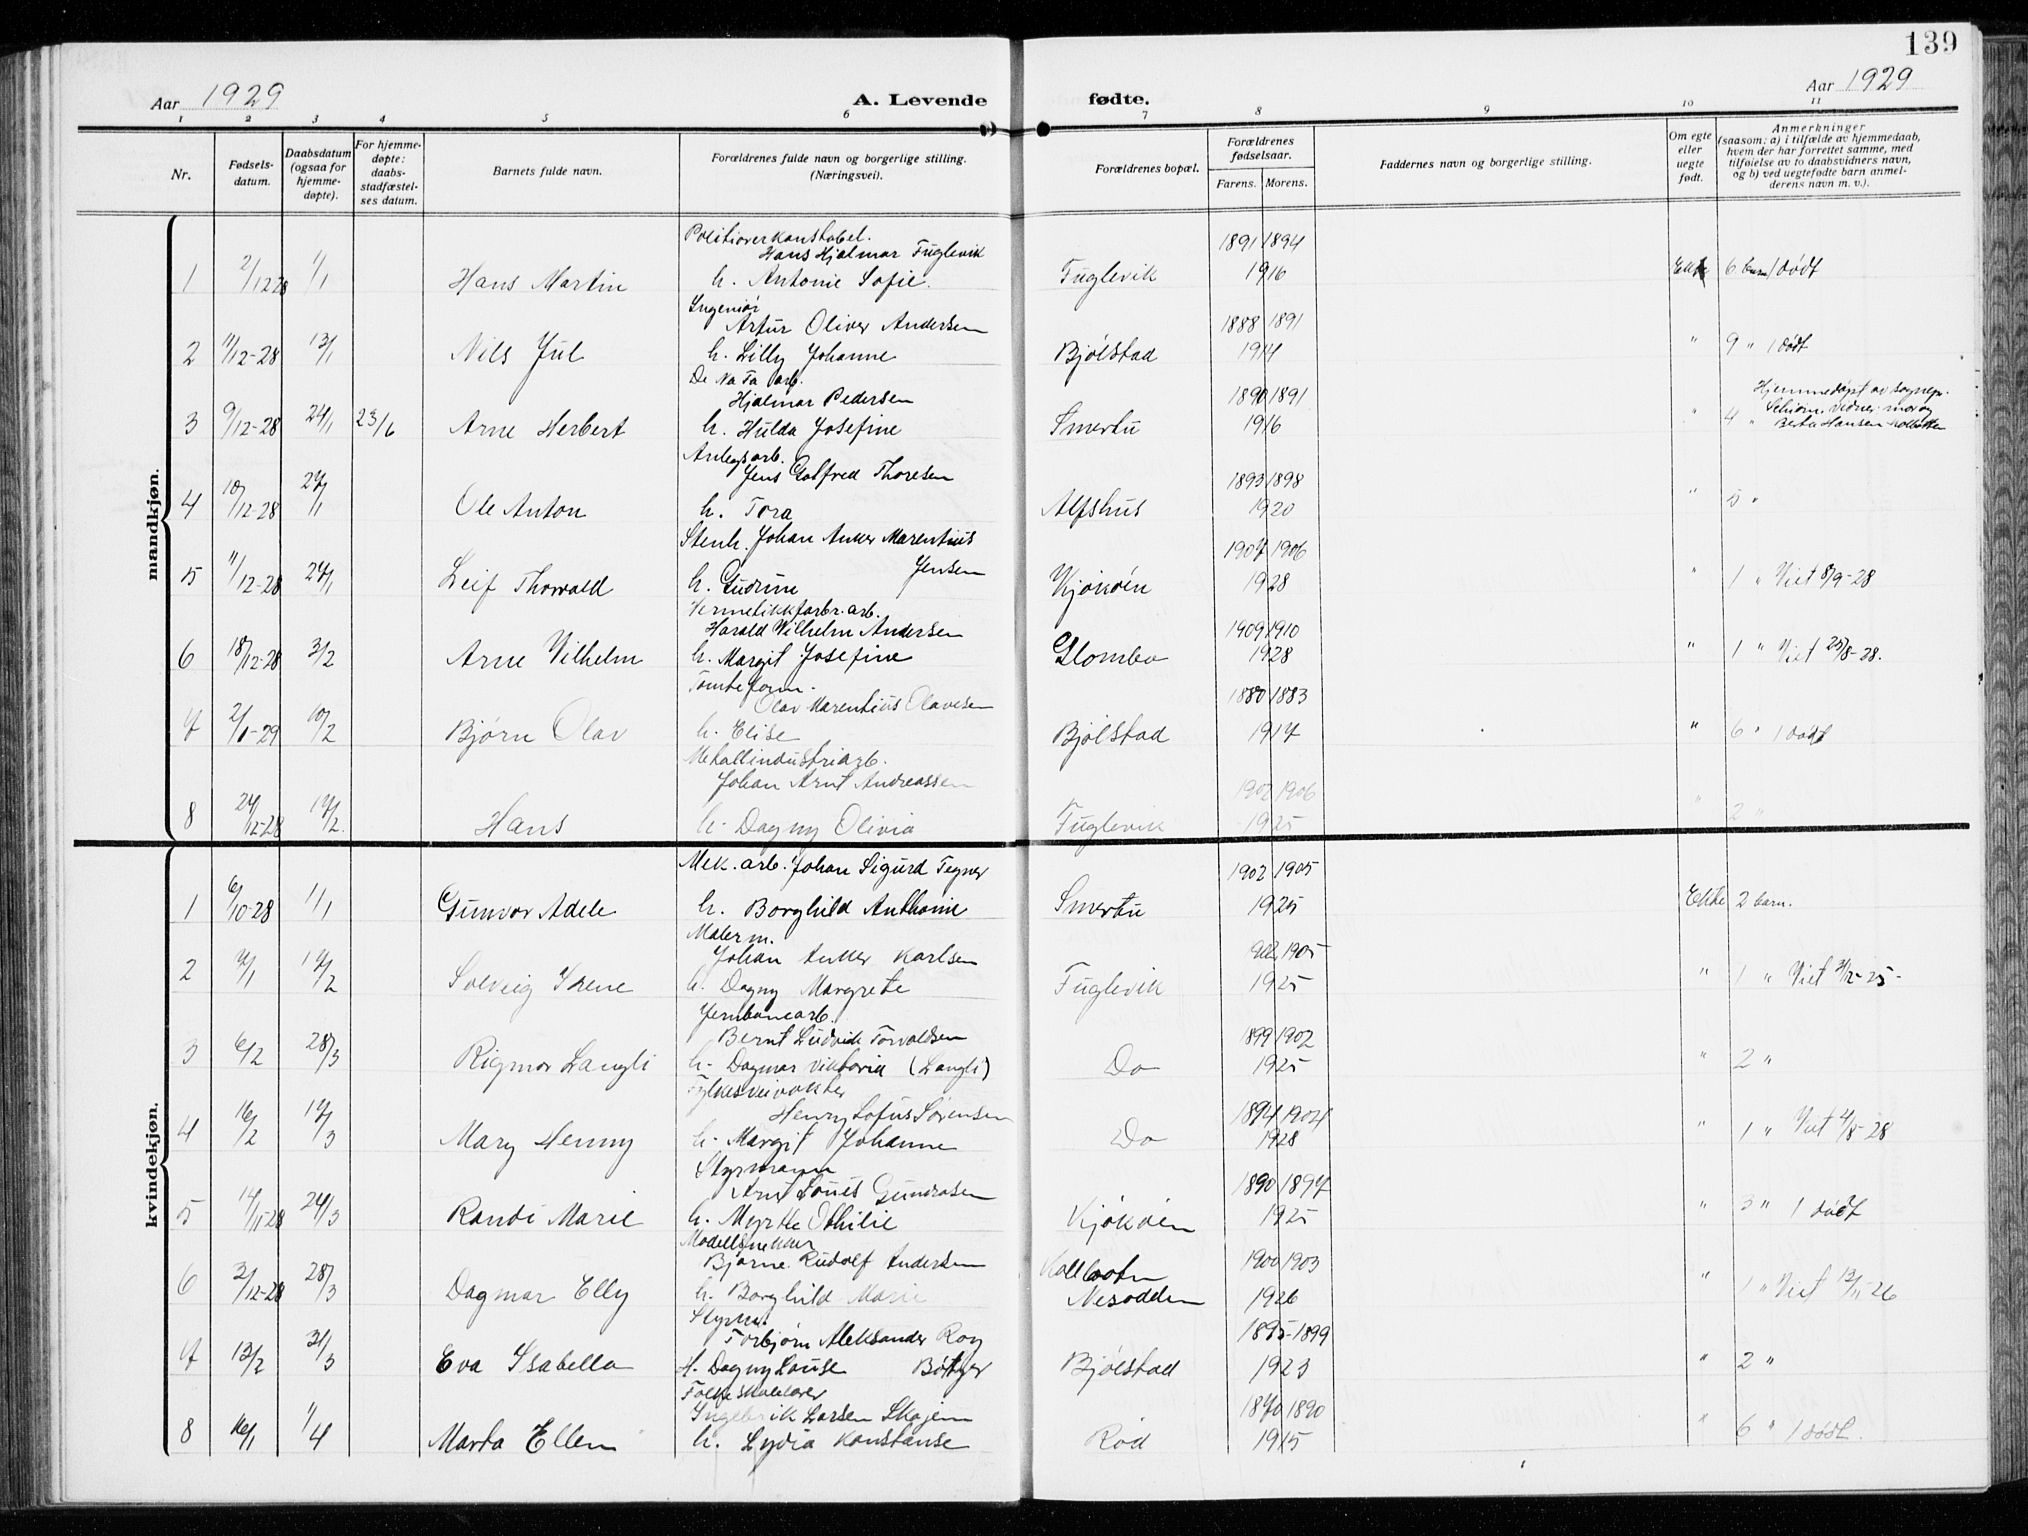 139
Aar 1929
A. Levende fødte.
Aar 1929
1 2 3 4 5 6 7 8 9 10 11
Nr.
Fødsels-
datum.
Daabsdatum
(ogsaa for
hjemme-
døpte).
For hjemme-
døpte:
daabs-
stadfæstel-
ses datum.
Barnets fulde navn.
Forældrenes fulde navn og borgerlige stilling.
(Næringsvei).
Forældrenes bopæl.
Forældrenes
fødselsaar.
Farens. Morens.
Faddernes navn og borgerlige stilling.
Om egte
eller
uegte
født.
Anmerkninger
(saasom: a) i tilfælde av hjemmedaab,
hvem der har forrettet samme, med
tilføielse av to daabsvidners navn,
og b) ved uegtefødte barn anmel-
derens navn m. v.).
mandkjøn.
Politioverkonstabel.
Hans Hjalmar Fuglevik 1891 1894
1 2/12 28 1/1 Hans Martin h. Antonie Sofie. Fuglevik 1916 Ekte 6 barn 1 dødt
Ingeniør
Artur Oliver Andersen 1888 1891
2 11/12-28 13/1 Nils Jul h. Lilly Johanne Bjølstad 1914 " 9 " 1 dødt
De Na Fa arb.
Hjalmar Pedersen 1890 1891 Hjemmedøpt av sognepr.
3 9/12-28 24/1 23/6 Arne Herbert h. Hulda Josefine Smertu 1916 " 4 "
Anlegsarb.
Jens Gotfred Thoresen 1893 1898
4 10/12-28 27/1 Ole Anton h. Tora Alfshus 1920 " 5 "
Stenh. Johan Anker Marentius
Jensen 1907 1906
5 11/12-28 27/1 Leif Thorvald h. Gudrun Kjøkøen 1928 " 1 " Viet 8/9-28
Hermetikkfabr. arb.
Harald Wilhelm Andersen 1909 1910
6 18/12-28 3/2 Arne Vilhelm h. Margit Josefine Glombo 1928 " 1 " Viet 25/8-28.
Tomteform.
Olav Marentius Olavesen 1880 1883
7 2/1-29 10/2 Bjørn Olav h. Elise Bjølstad 1917 " 6 " 1 dødt
Metallindustriarb.
Johan Arnt Andreassen 1902 1906
8 24/12-28 17/2. Hans h. Dagny Olivia Fuglevik 1925 " 2 "
kvindekjøn.
Mek. arb. Johan Sigurd Tegner 1902 1905
1 6/10-28 1/1 Gunvor Adele h. Borghild Anthonie Smertu 1925 Ekte 2 barn.
Malerm.
Johan Anker Karlsen 1905
2 1 17/2 Solveig Irene h. Dagny Margrete Fuglevik 1925 " 1 " Viet 3/12-25-
Jernbanearb.
Bernt Ludvik Torvaldsen 1899 1902
3 6/2 28/3 Rigmor Langli h. Dagmar Viktoria (Langli) Do 1925 " 2 "
Fylkesveivokter
Henry Lofus Sørensen 1894 1904
4 16/2 17/3 Mary Henny h. Margit Johanne Do 1928 " 1 " Viet 4/8-28
Styrmann
Arnt Louis Gundersen 1890 1897
5 14/11-28 24/3 Randi Marie h. Myrtle Othilie Kjøkøen 1925 " 3 " 1 dødt
Modellsnekker
Bjarne Rudolf Andersen Kolbotn 1900 1903
6 2/12-28 28/3 Dagmar Elly h. Borghild Marie Nesodden 1926 " 1 " Viet 13/11-26
Styrm.
Torbjørn Aleksander Roy 1895-1899
7 13/2 31/3 Eva Isabella H. Dagny Louise Bøtger Bjølstad 1923 " 2 "
Folkeskolelærer
Ingebrik Larsen Skajem 1870 1890
8 16/1 1/4 Marta Ellen h. Lydia Konstanse Rød 1915 " 6 " 1 dødt.